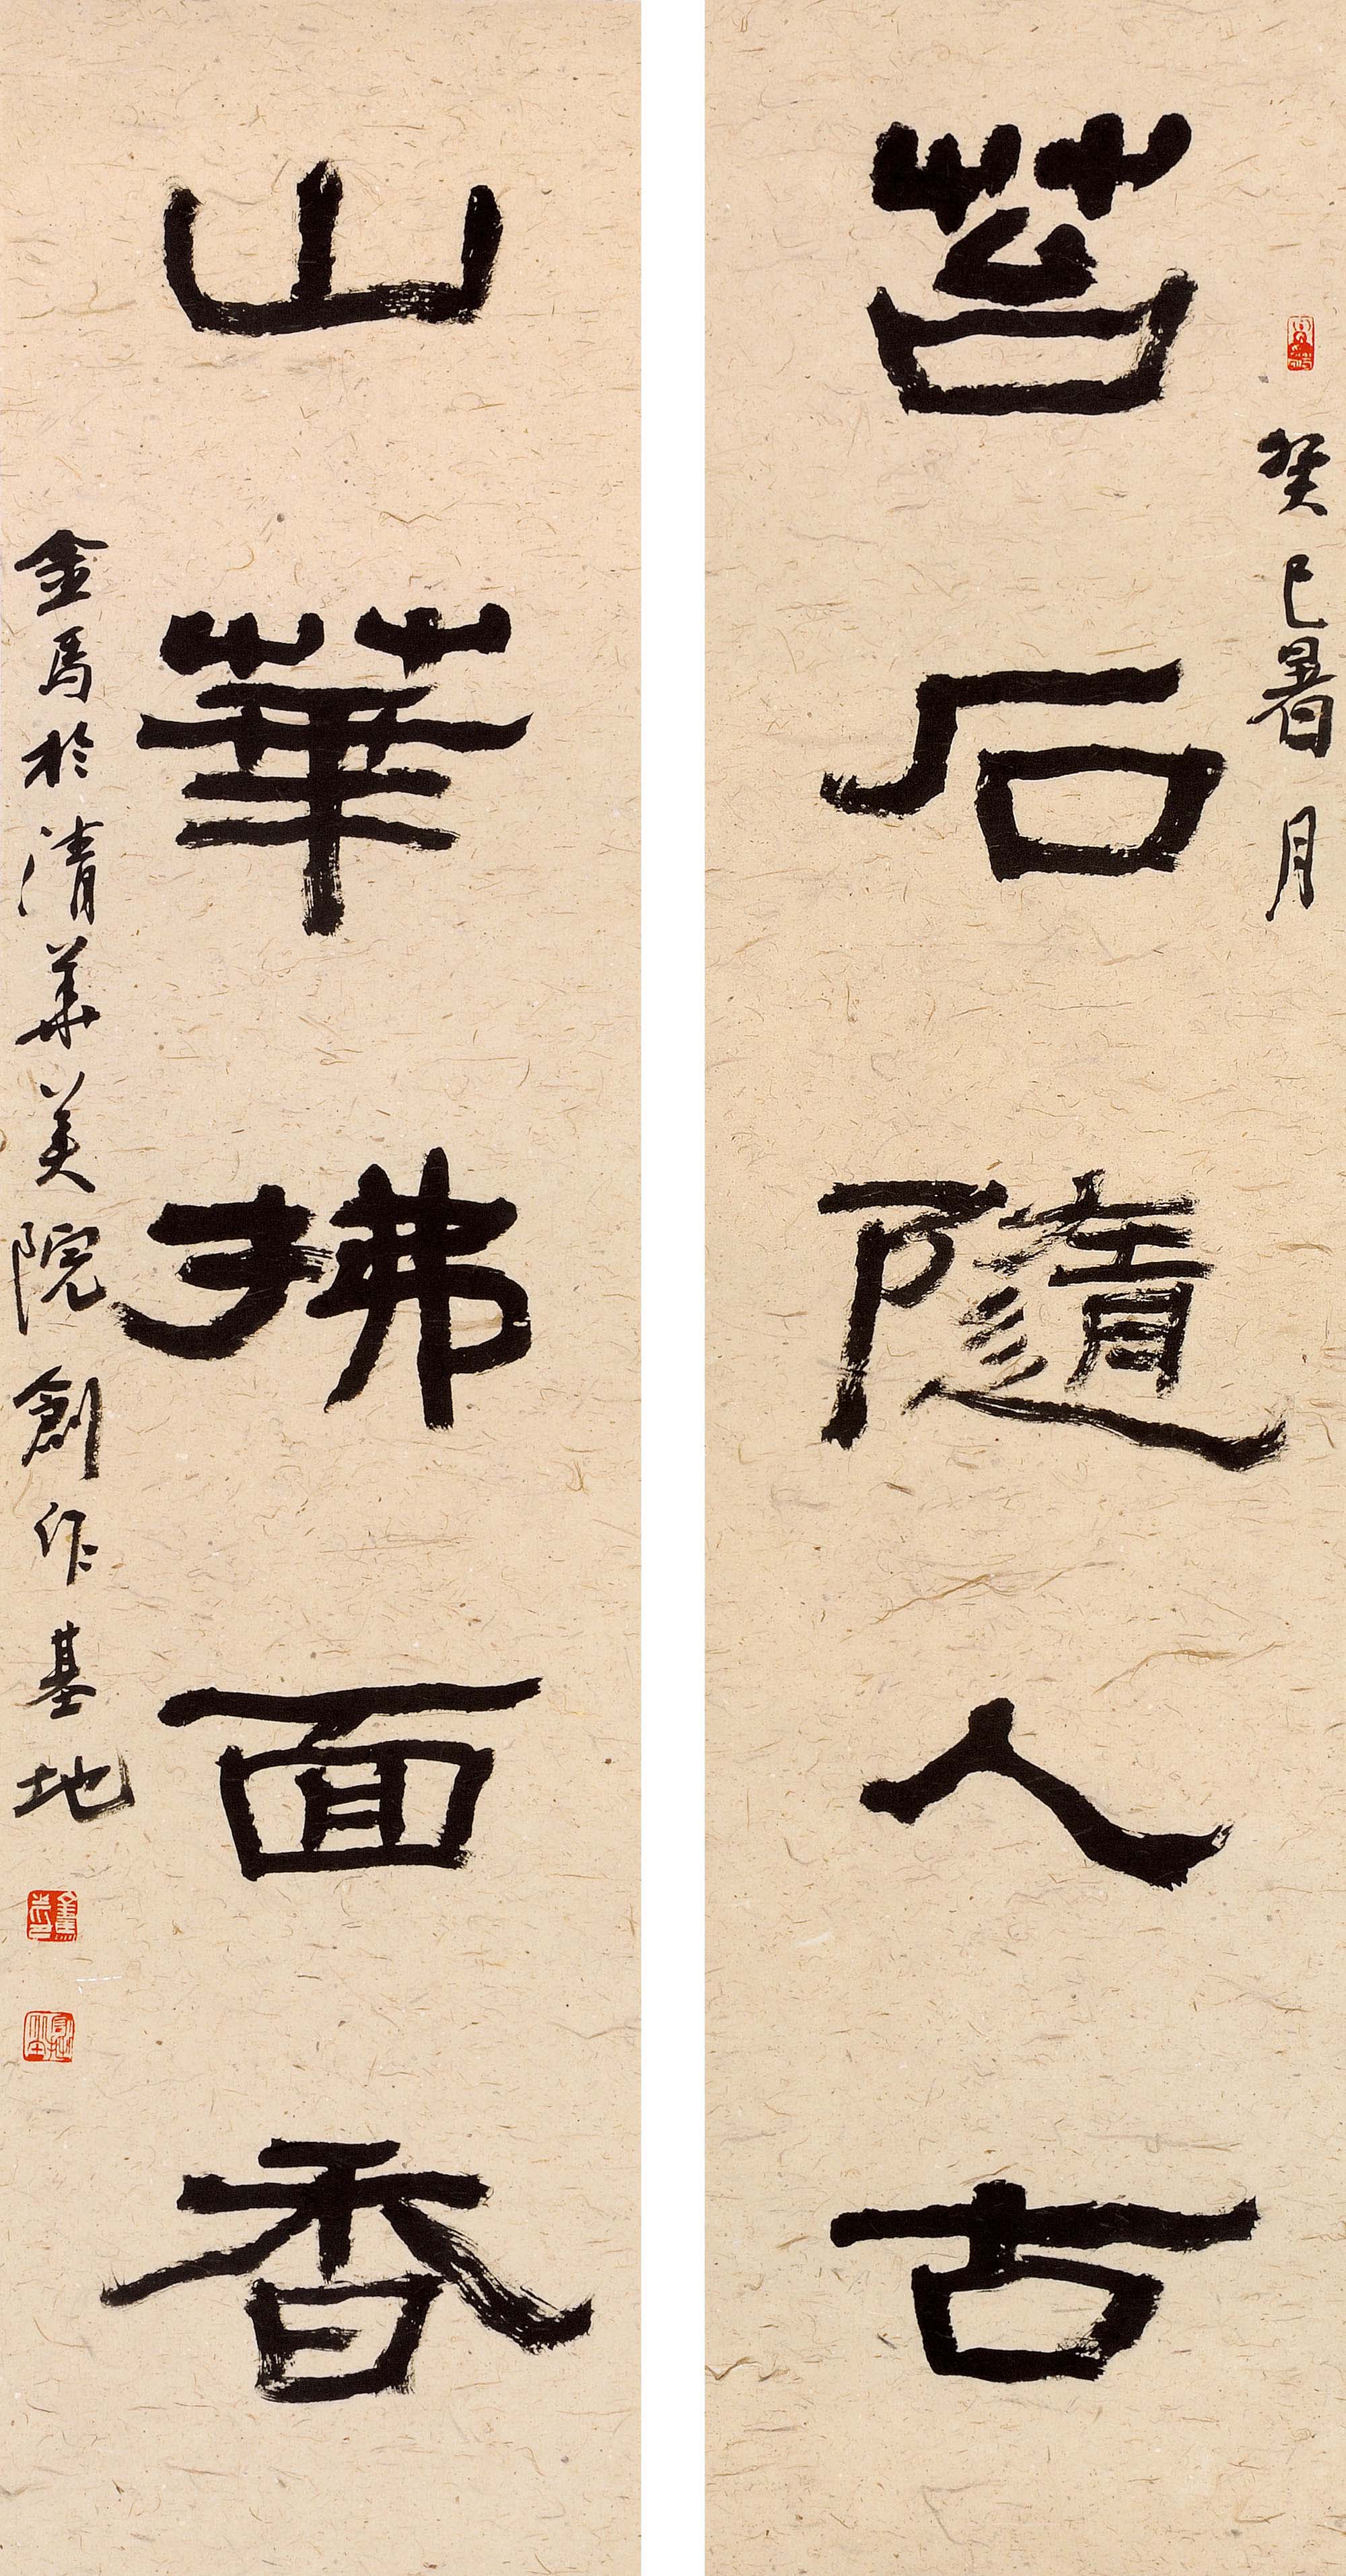 癸巳暑月
苔石隨人古
山華拂面香
金馬於清華美院創作基地